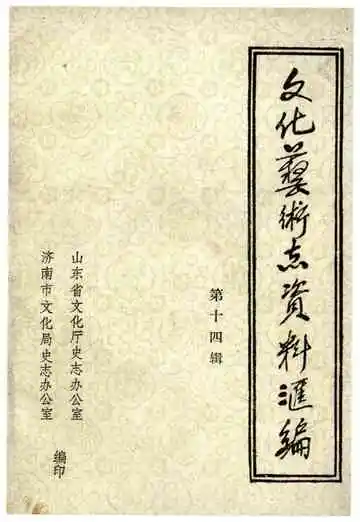 文化藝術志資料匯編
第十四辑
山东省文化厅史志办公室
济南市文化局史志办公室
编印